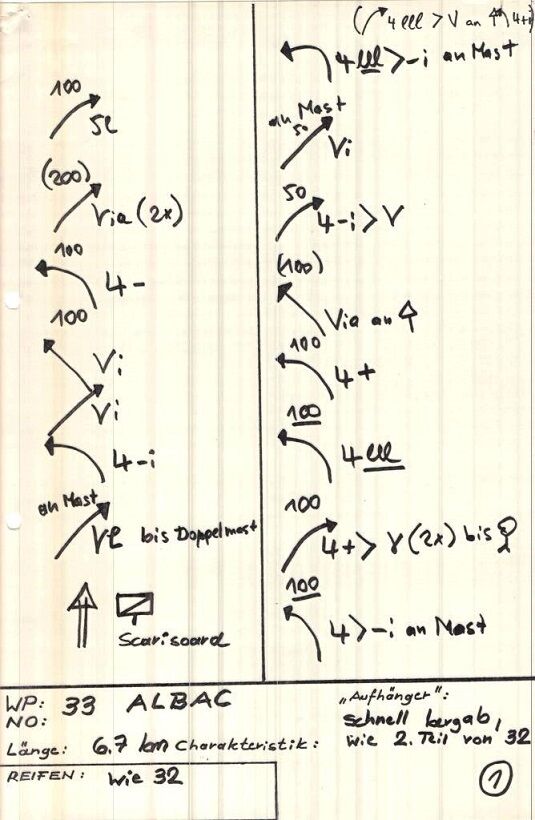 100
5l
(200)
Via (2x)
100
4-
100
Vi
Vi
4-i
an Mast
Vl bis Doppelmast
Scarisoard
(4 lll > V an 4+i)
4 lll > -i an Mast
an Mast
50
Vi
50
4-i > V
(100)
Via an
100
4+
100
4 lll
100
4+ > V (2x) bis
100
4 > -i an Mast
WP: 33 ALBAC
NO:
Länge: 6.7 km Charakteristik:
„Aufhänger":
schnell bergab,
wie 2. Teil von 32
REIFEN: wie 32
1